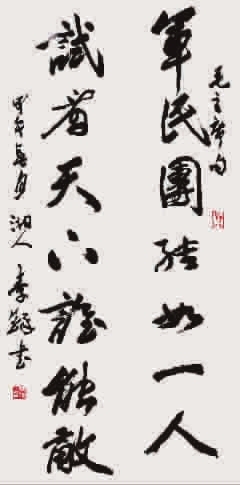 毛主席句
軍民團結如一人
試看天下誰能敵
甲午月湖人李書